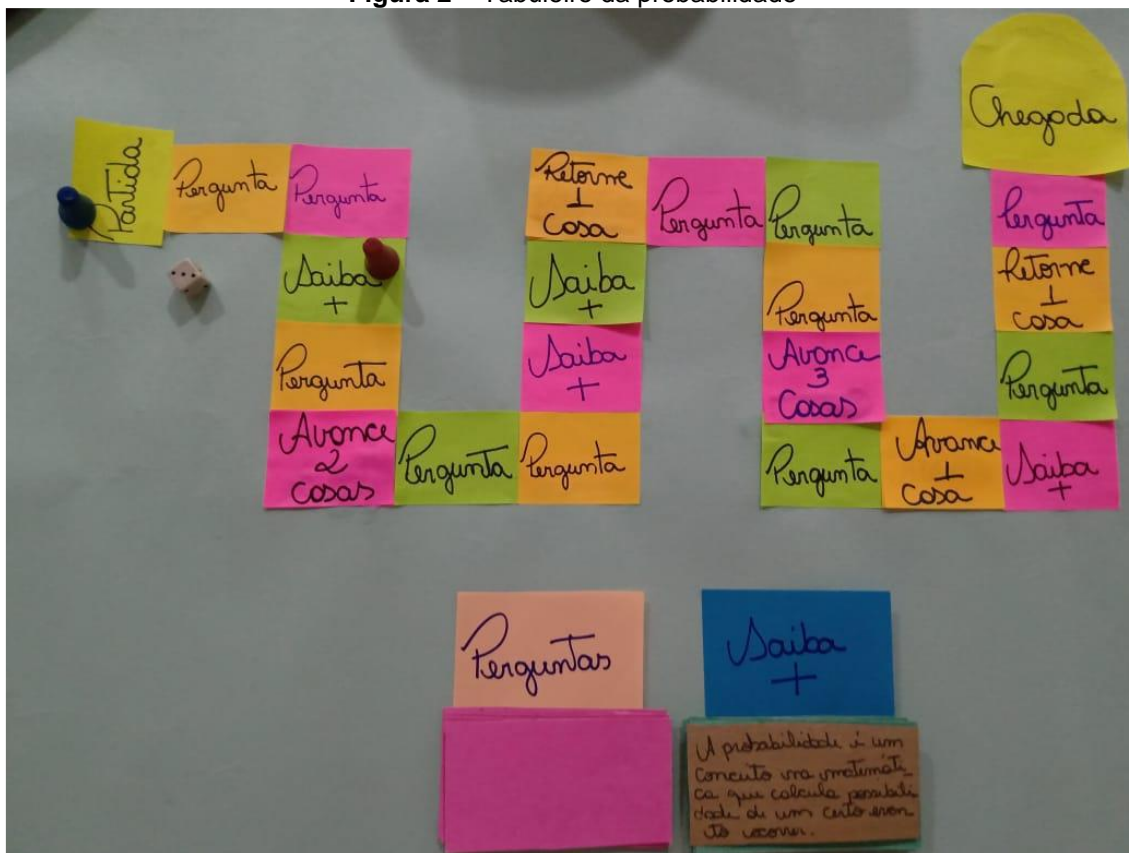 Figura 2 – Tabuleiro da probabilidade
Partida
Pergunta
Pergunta
Saiba
+
Pergunta
Avance
2
casas
Pergunta
Pergunta
Saiba
+
Saiba
+
Retorne
1
casa
Pergunta
Pergunta
Pergunta
Avance
3
Casas
Pergunta
Avance
1
casa
Saiba
+
Pergunta
Retorne
1
casa
Pergunta
Chegada
Perguntas
Saiba
+
A probabilidade é um
conceito na matemáti_
ca que calcula possibili
dade de um certo even
to ocorrer.